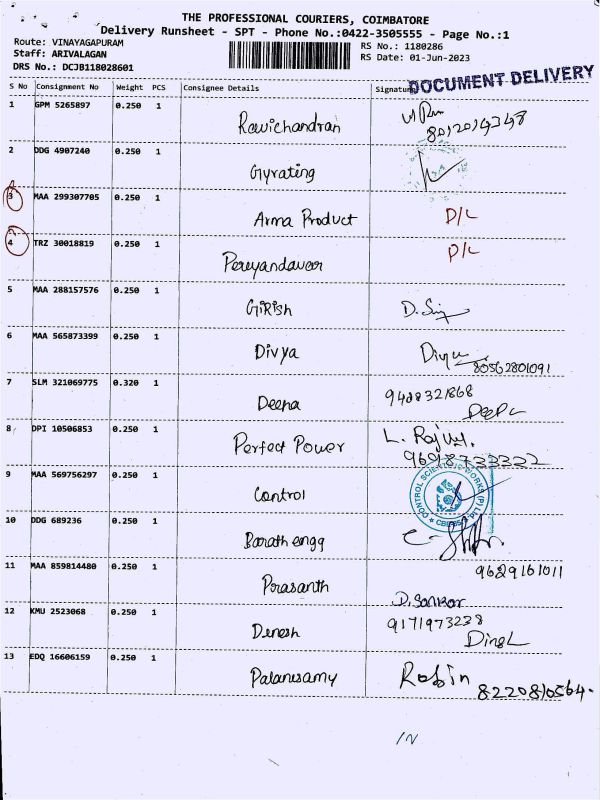 THE PROFESSIONAL COURIERS, COIMBATORE
Delivery Runsheet - SPT - Phone No.:0422-3505555 - Page No.:1
Route: VINAYAGAPURAM
Staff: ARIVALAGAN
DRS No.: DCJB118028601
RS No.: 1180286
RS Date: 01-Jun-2023
DOCUMENT DELIVERY
S No Consignment No Weight PCS Consignee Details Signature
1 GPM 5265897 0.250 1 Ravichandran 8012014348
2 DDG 4907240 0.250 1 Gyrating
3 MAA 299307705 0.250 1 Arma Product D/L
4 TRZ 30018819 0.250 1 D/L
5 MAA 288157576 0.250 1 GiRish
6 MAA 565873399 0.250 1 Divya 80562801091
7 SLM 321069775 0.320 1 Deepa 9488321868
8 DPI 10506853 0.250 1 Perfect Power L.
9 MAA 569756297 0.250 1 Control CONTROL SCIENTIFIC WORKS (P) Ltd
10 DDG 689236 0.250 1 Barath engg
11 MAA 859814480 0.250 1 Prasanth 9629161011
D. Sankar
12 KMU 2523068 0.250 1 Dinesh 9171973238
13 EDQ 16606159 0.250 1 Palanisamy Robin
8220810564
IN